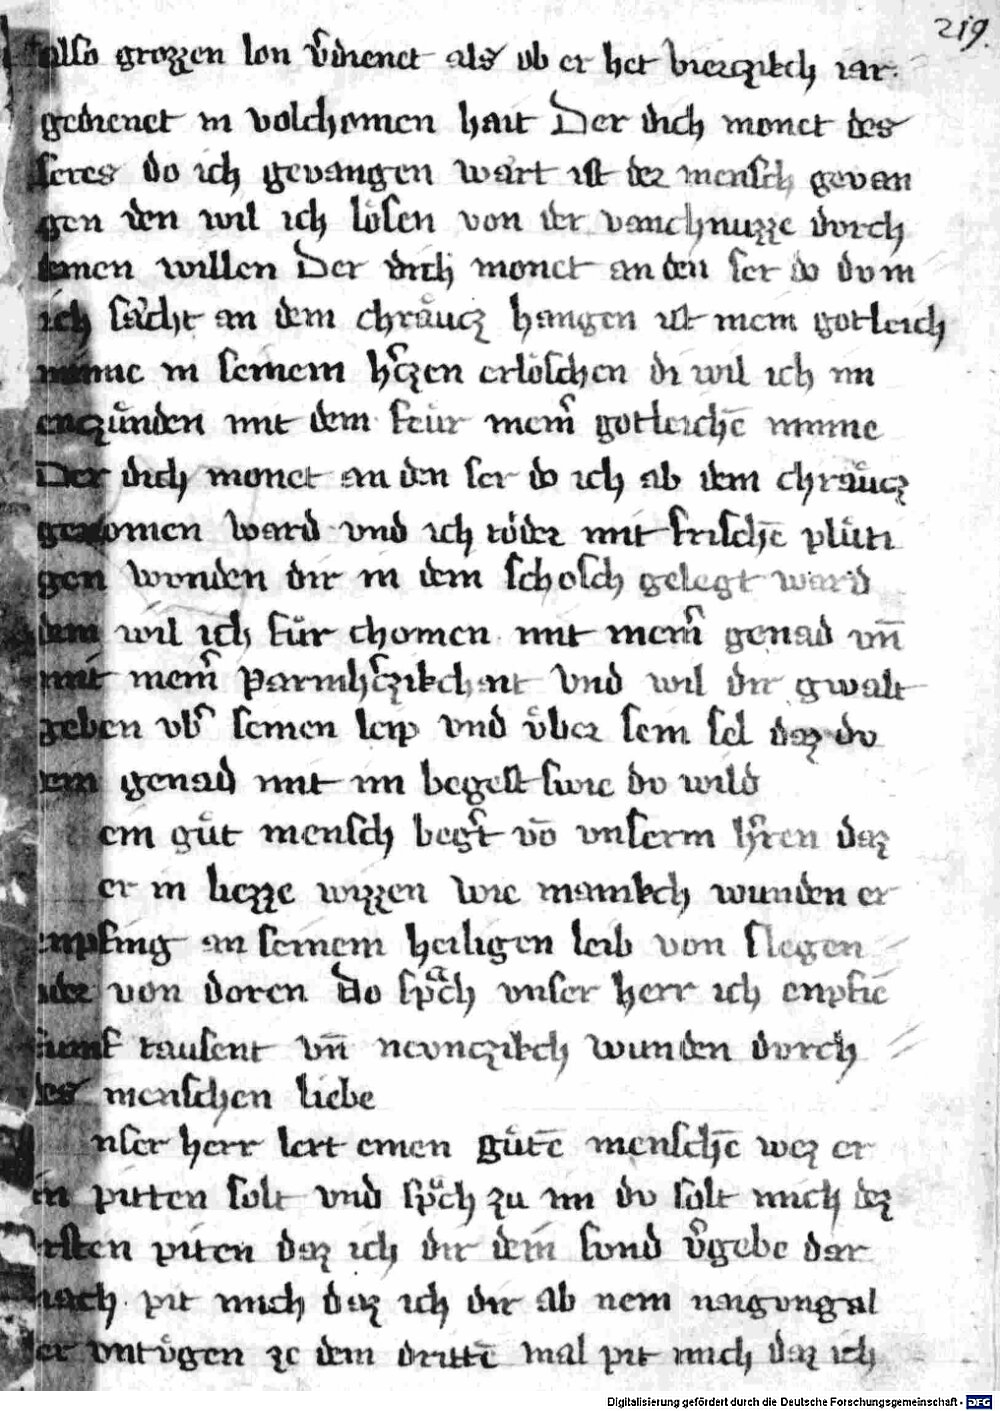 219.
also grozzen lon v̾dienet als ob er het vierczikch iar
gedienet in volchomen hait Der dich monet des
seres do ich gevangen wart ist der mensch gevan
gen den wil ich lo̊sen von der vanchnuzze dvrch
deinen willen Der dich monet an den ser do dv m
ich sa̍cht an dem chra̍u̍cz hangen ist mein gotleich
minne in seinem h̾czen erlo̍schen di wil ich im
enczu̍nden mit dem feu̍r meinr̾ gotleichē minne
Der dich monet an den ser do ich ab dem chra̍u̍cz
genomen ward vnd ich to̍der mit frischē plu̍ti
gen wunden dir in dem schosch gelegt ward
dem wil ich fu̍r chomen mit mein̾ genad vn̄
mit mein̾ parmh̾czikchait vnd wil dir gwalt
geben vb̾ seinen leip vnd v̍ber sein sel daz dv
ein genad mit im begest swie dv wild
em gu̍t mensch beg̾t vō vnserm h̾ren daz
er in liezze wizzen wie manikch wunden er
enpfing an seinem heiligen leib von slegen
oder von doren do spᵃch vnser herr ich enpfie
fumf tausent vn̄ nevnczikch wunden dvrch
des menschen liebe
nser herr lert einen gu̍tē menschē wez er
in piten solt vnd spᵃch zu im dv solt mich dez
ersten piten daz ich dir dein svnd v̾gebe dar
nach pit mich daz ich dir ab nem naigvng al
ler vntvgen ze dem drittē mal pit mich daz ich
Digitalisierung gefördert durch die Deutsche Forschungsgemeinschaft - DFG